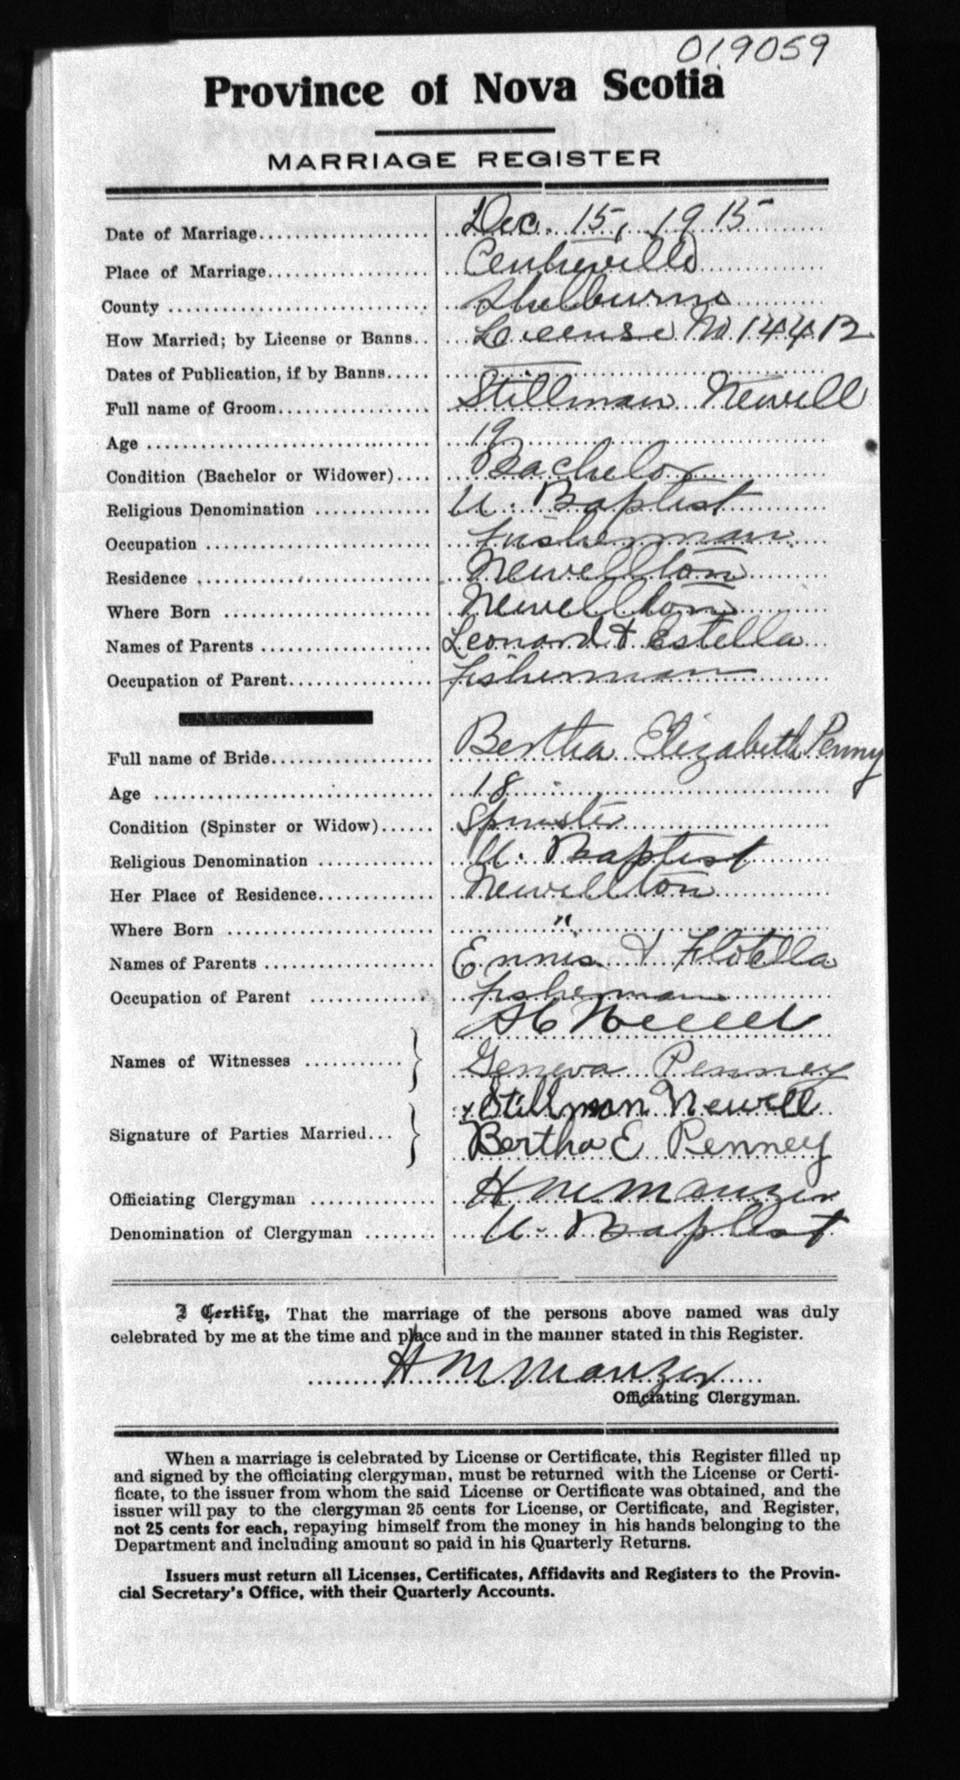 019059
Province of Nova Scotia
MARRIAGE REGISTER
Date of Marriage Dec. 15, 1915
Place of Marriage Centreville
County Shelburne
How Married; by License or Banns License No. 1442
Dates of Publication, if by Banns
Full name of Groom Stillman Newell
Age 19
Condition (Bachelor or Widower) Bachelor
Religious Denomination U. Baptist
Occupation Fisherman
Residence Newellton
Where Born Newellton
Names of Parents Leonard & Estella
Occupation of Parent fisherman
Full name of Bride Bertha Elizabeth Penny
Age 18
Condition (Spinster or Widow) Spinster
Religious Denomination U. Baptist
Her Place of Residence Newellton
Where Born "
Names of Parents Ennis & Flotella
Occupation of Parent fisherman
Names of Witnesses
Geneva Penney
Signature of Parties Married x Stillman Newell
Bertha E Penney
Officiating Clergyman H M Manzer
Denomination of Clergyman U. Baptist
I Certify, That the marriage of the persons above named was duly
celebrated by me at the time and place and in the manner stated in this Register.
H M Manzer
Officiating Clergyman.
When a marriage is celebrated by License or Certificate, this Register filled up
and signed by the officiating clergyman, must be returned with the License or Certi-
ficate, to the issuer from whom the said License or Certificate was obtained, and the
issuer will pay to the clergyman 25 cents for License, or Certificate, and Register,
not 25 cents for each, repaying himself from the money in his hands belonging to the
Department and including amount so paid in his Quarterly Returns.
Issuers must return all Licenses, Certificates, Affidavits and Registers to the Provin-
cial Secretary's Office, with their Quarterly Accounts.